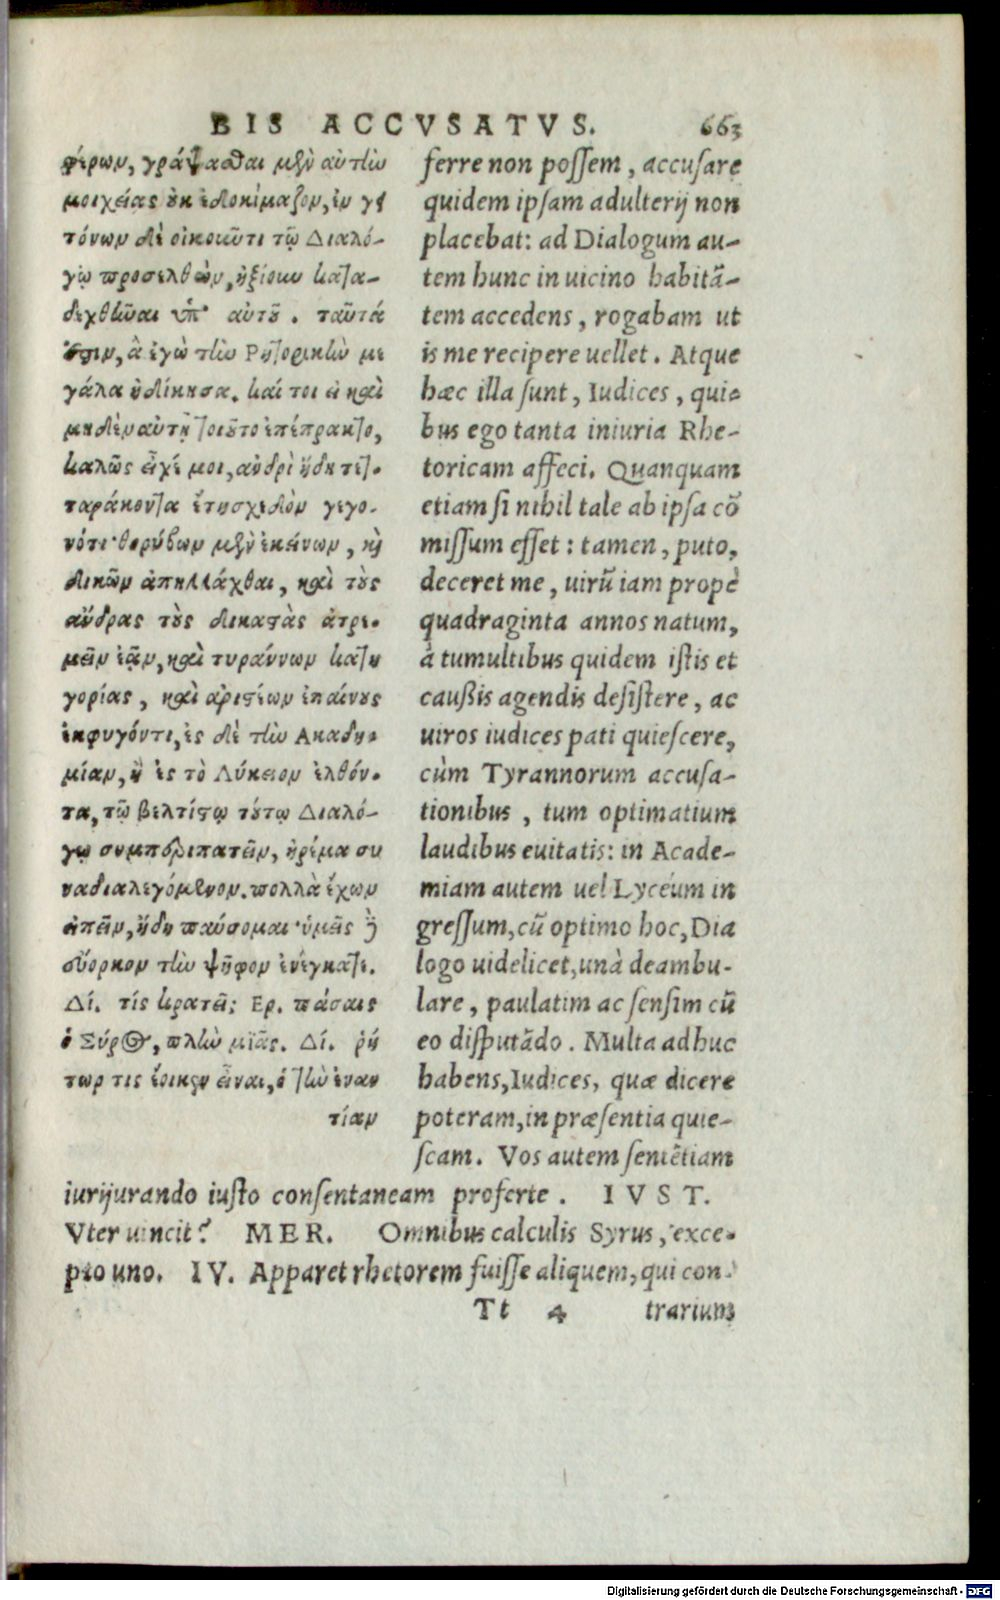 BIS ACCVSATVS. 663
φέρων, γράψασθαι μὲν αὐτὴν
μοιχείας οὐκ ἐδοκίμαζον, ἐν γει
τόνων δὲ οἰκοῦντι τῷ Διαλό-
γῳ προσελθὼν, ἠξίουν κατα-
δεχθῆναι ὑπ' αὐτοῦ. ταῦτά
ἐστιν, ἃ ἐγὼ τὴν Ρητορικὴν με
γάλα ἠδίκησα. καί τοι εἰ καὶ
μηδὲν αὐτῇ τοιοῦτο ἐπέπρακτο,
καλῶς εἶχέ μοι, ἀνδρὶ ἤδη τετ-
ταράκοντα ἔτη σχεδὸν γεγο-
νότι· θορύβων μὲν ἐκείνων, καὶ
δικῶν ἀπηλλάχθαι, καὶ τοὺς
ἄνδρας τοὺς δικαστὰς ἀτρε-
μεῖν ἐᾷν, καὶ τυράννων κατη
γορίας, καὶ ἀριστέων ἐπαίνους
ἐκφυγόντι, ἐς δὲ τὴν Ακαδη-
μίαν, ἢ ἐς τὸ Λύκειον ἐλθόν-
τα, τῷ βελτίστῳ τούτῳ Διαλό-
γῳ συμπεριπατεῖν, ἠρέμα συ
ναδιαλεγόμενον. πολλὰ ἔχων
εἰπεῖν, ἤδη παύσομαι· ὑμεῖς δὲ
εὔορκον τὴν ψῆφον ἐνέγκατε.
Δί. τίς κρατεῖ; Ερ. πάσαις
ὁ Σύρος, πλὴν μιᾶς. Δί. ῥή
τωρ τις ἔοικεν εἶναι, ὁ τὴν ἐναν
τίαν
ferre non possem, accusare
quidem ipsam adulterij non
placebat: ad Dialogum au-
tem hunc in uicino habitā-
tem accedens, rogabam ut
is me recipere uellet. Atque
hæc illa sunt, Iudices, qui-
bus ego tanta iniuria Rhe-
toricam affeci. Quanquam
etiam si nihil tale ab ipsa cō
missum esset: tamen, puto,
deceret me, uirū iam propè
quadraginta annos natum,
à tumultibus quidem istis et
caußis agendis desistere, ac
uiros iudices pati quiescere,
cùm Tyrannorum accusa-
tionibus, tum optimatium
laudibus euitatis: in Acade-
miam autem uel Lycéum in
gressum, cū optimo hoc, Dia
logo uidelicet, unà deambu-
lare, paulatim ac sensim cū
eo disputādo. Multa adhuc
habens, Iudices, quæ dicere
poteram, in præsentia quie-
scam. Vos autem sentētiam
iurijurando iusto consentaneam proferte. IVST.
Vter uincit? MER. Omnibus calculis Syrus, exce-
pto uno. IV. Apparet rhetorem fuisse aliquem, qui con-
Tt 4 trarium
Digitalisierung gefördert durch die Deutsche Forschungsgemeinschaft - DFG